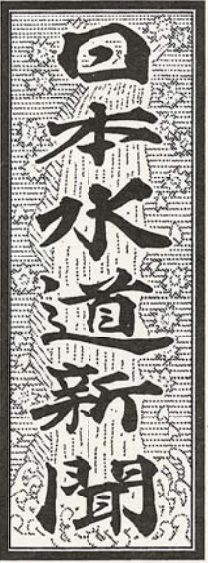 日本水道新聞